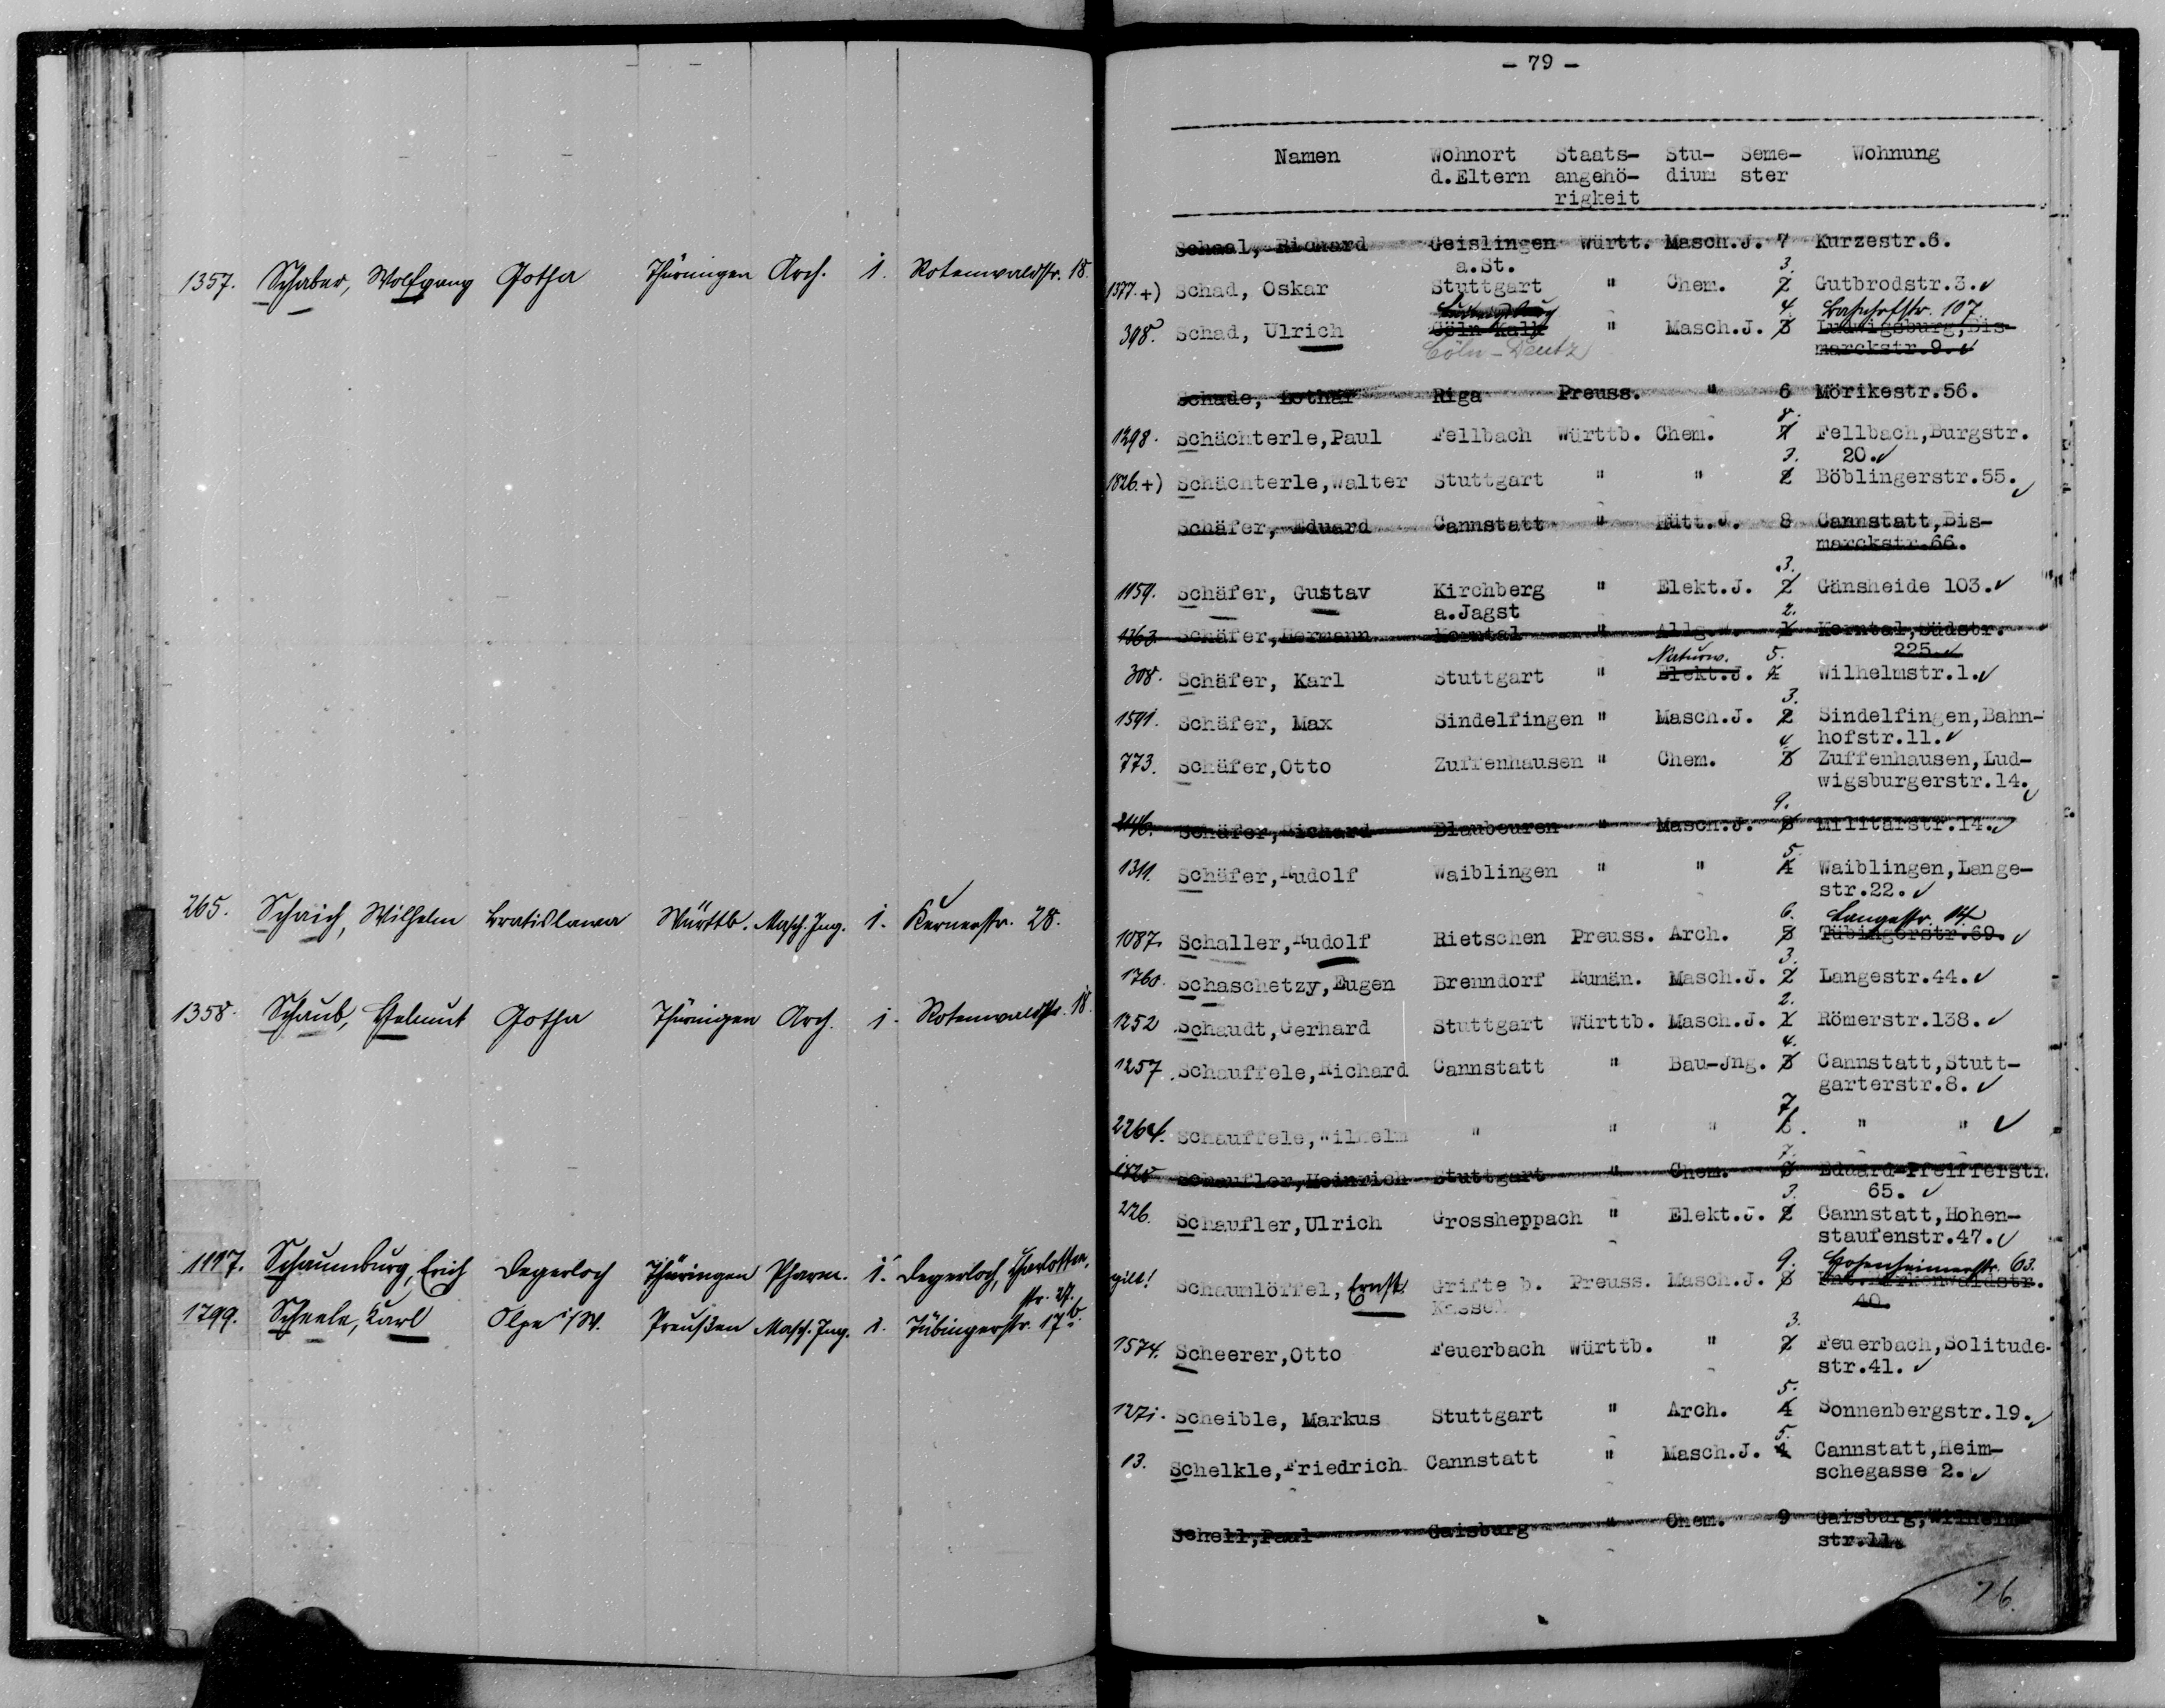 1357. Schaber, Wolfgang Gotha Thüringen Arch. 1. Rotenwaldstr. 18.
265. Schaich, Wilhelm Bratislawa Württb. Masch. Ing. 1. Kernerstr. 28.
1358. Schaub, Helmut Gotha Thüringen Arch. 1. Rotenwaldstr. 18.
1197. Schaumburg, Erich Degerloch Thüringen Pharm. 1. Degerloch, Charlotten-
str. 27.
1799. Scheele, Karl Olpe i/W. Preußen Masch. Ing. 1. Tübingerstr. 17b.
- 79 -
Namen Wohnort Staats- Stu- Seme- Wohnung
d.Eltern angehö- dium ster
rigkeit
Schaal, Richard Geislingen Württ. Masch.J. 7 Kurzestr.6.
a.St. 3.
1377.+) Schad, Oskar Stuttgart " Chem. 2 Gutbrodstr.3.✓
Ludwigsburg 4. Bahnhofstr. 107.
398. Schad, Ulrich Cöln Kalk " Masch.J. 3 Ludwigsburg,Bis-
Cöln-Deutz marckstr.9.✓
Schade, Lothar Riga Preuss. " 6 Mörikestr.56.
8.
1298. Schächterle,Paul Fellbach Württb. Chem. 7 Fellbach,Burgstr.
3. 20.✓
1826.+) Schächterle,Walter Stuttgart " " 2 Böblingerstr.55.✓
Schäfer, Eduard Cannstatt " Hütt.J. 8 Cannstatt,Bis-
marckstr.66.
3.
1159. Schäfer, Gustav Kirchberg " Elekt.J. 2 Gänsheide 103.✓
a.Jagst 2.
1363. Schäfer,Hermann Korntal " Allg.W. 1 Korntal,Südstr.
Naturw. 5. 225.✓
308. Schäfer, Karl Stuttgart " Elekt.J. 4 Wilhelmstr.1.✓
3.
1591. Schäfer, Max Sindelfingen " Masch.J. 2 Sindelfingen,Bahn-
4. hofstr.11.✓
773. Schäfer,Otto Zuffenhausen " Chem. 3 Zuffenhausen,Lud-
wigsburgerstr.14.✓
9.
2146. Schäfer,Richard Blaubeuren " Masch.J. 8 Militärstr.14.✓
5.
1311. Schäfer,Rudolf Waiblingen " " 4 Waiblingen,Lange-
str.22.✓
6. Langestr. 14
1087. Schaller,Rudolf Rietschen Preuss. Arch. 5 Tübingerstr.69.✓
3.
1760. Schaschetzy,Eugen Brenndorf Rumän. Masch.J. 2 Langestr.44.✓
2.
1252 Schaudt,Gerhard Stuttgart Württb. Masch.J. 1 Römerstr.138.✓
4.
1257. Schauffele,Richard Cannstatt " Bau-Jng. 3 Cannstatt,Stutt-
garterstr.8.✓
7.
2264. Schauffele,Wilhelm " " " 6. " " ✓
7.
Schaufler,Heinrich Stuttgart " Chem. 6 Eduard-Pfeifferstr.
3. 65.✓
226. Schaufler,Ulrich Grossheppach " Elekt.J. 2 Cannstatt,Hohen-
staufenstr.47.✓
9. Hohenheimerstr. 63.
gilt! Schaumlöffel, Ernst Grifte b. Preuss. Masch.J. 8 Unt.Birkenwaldstr.
Kassel 40.
3.
1574. Scheerer,Otto Feuerbach Württb. " 2 Feuerbach,Solitude-
str.41.✓
5.
1271. Scheible, Markus Stuttgart " Arch. 4 Sonnenbergstr.19.✓
5.
13. Schelkle,Friedrich Cannstatt " Masch.J. 4 Cannstatt,Heim-
schegasse 2.✓
Schell,Paul Gaisburg " Chem. 9 Gaisburg,Wilhelm-
str.11.
26.